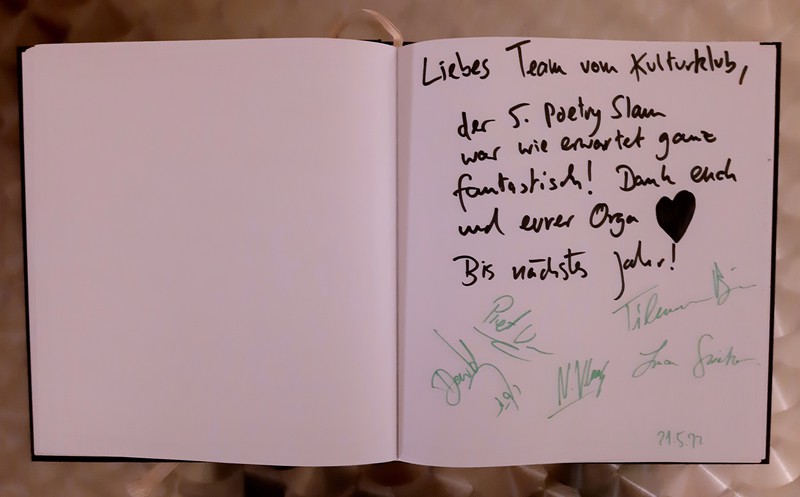 Liebes Team vom Kulturklub,
der 5. Poetry Slam
war wie erwartet ganz
fantastisch! Dank euch
und eurer Orga ♥
Bis nächstes Jahr!
Piet
David
N.
21.5.22